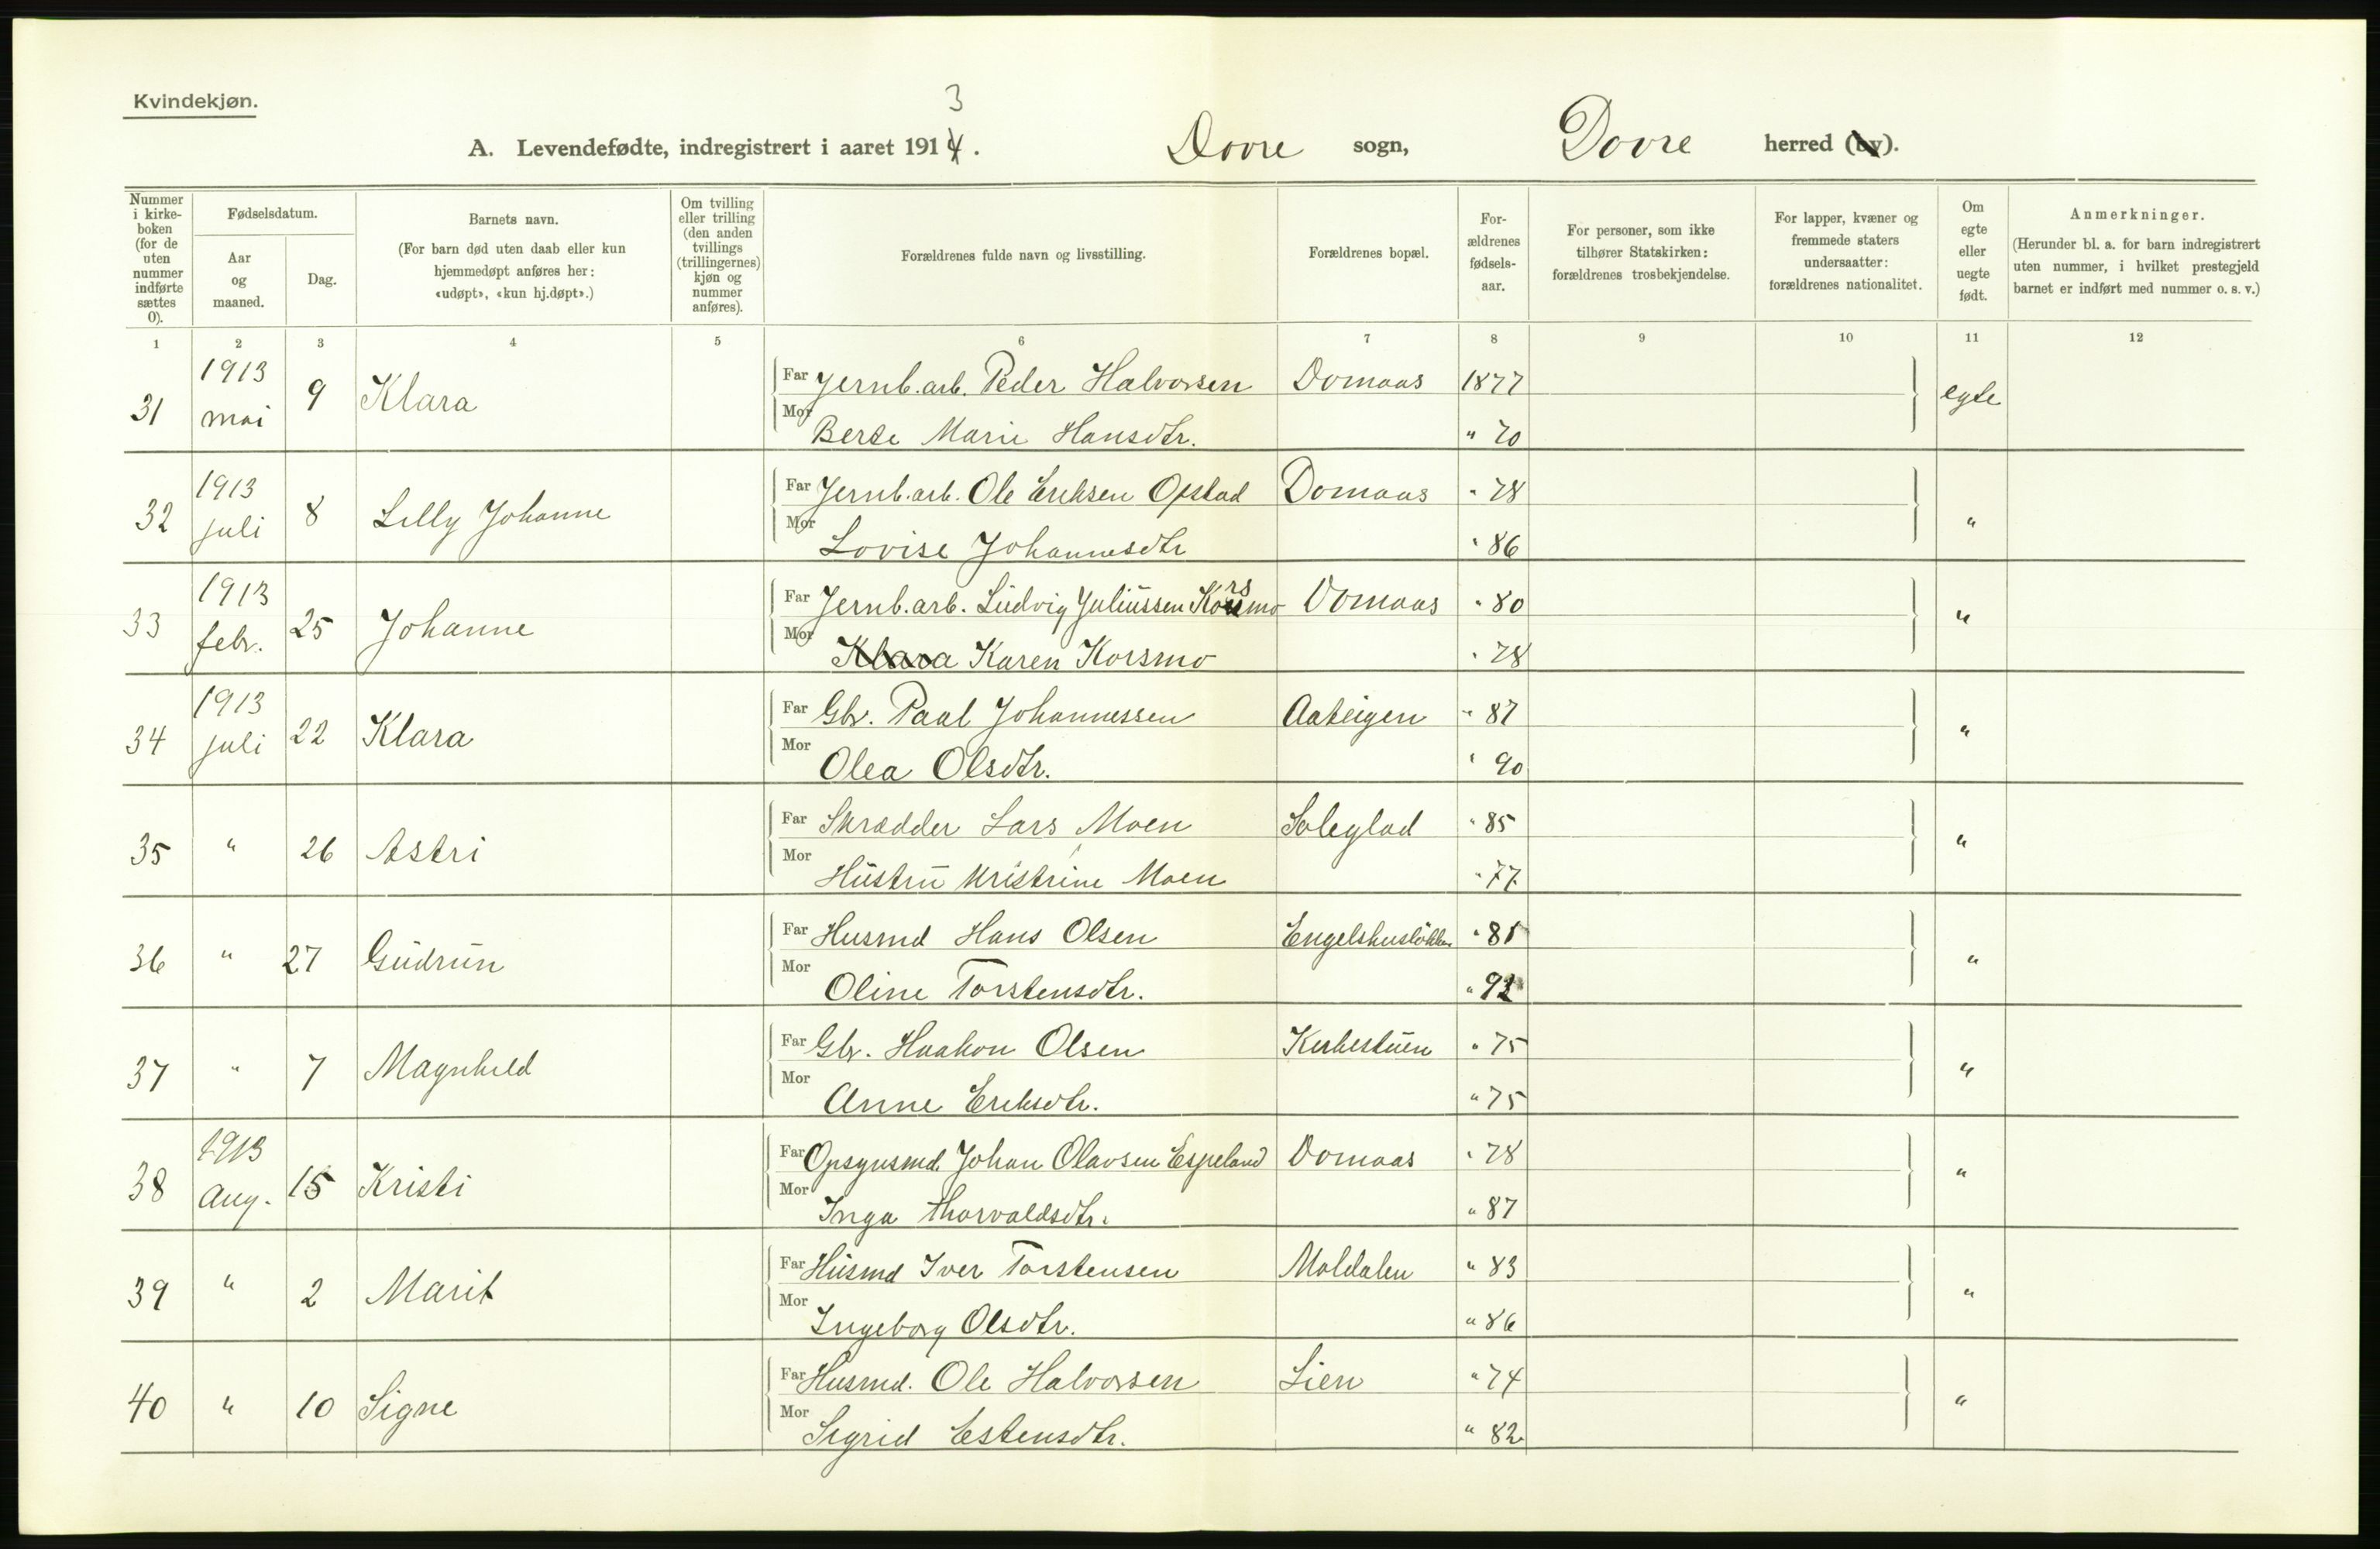 Kvindekjøn.
3
A. Levendefødte, indregistrert i aaret 1914. Dovre sogn, Dovre herred (by).
Nummer i kirke-boken (for de uten nummer indførte sættes 0).
Fødselsdatum.
Aar og maaned.
Dag.
Barnets navn.
(For barn død uten daab eller kun hjemmedøpt anføres her: «udøpt», «kun hj.døpt».)
Om tvilling eller trilling (den anden tvillings (trillingernes) kjøn og nummer anføres).
Forældrenes fulde navn og livsstilling.
Forældrenes bopæl.
For-ældrenes fødsels-aar.
For personer, som ikke tilhører Statskirken: forældrenes trosbekjendelse.
For lapper, kvæner og fremmede staters undersaatter: forældrenes nationalitet.
Om egte eller uegte født.
Anmerkninger.
(Herunder bl. a. for barn indregistrert uten nummer, i hvilket prestegjeld barnet er indført med nummer o. s. v.)
1 2 3 4 5 6 7 8 9 10 11 12
31 1913 mai 9 Klara Far Jernb.arb. Peder Halvorsen Domaas 1877 egte
Mor Berte Marie Hansdtr. " 70
32 1913 juli 8 Lilly Johanne Far Jernb.arb. Ole Eriksen Opstad Domaas " 78 "
Mor Lovise Johannesdtr " 86
33 1913 febr. 25 Johanne Far Jernb.arb. Ludvig Juliussen Korsmo Domaas " 80 "
Mor Klara Karen Korsmo " 78
34 1913 juli 22 Klara Far Gbr. Paal Johannessen Aateigen " 87 "
Mor Olea Olsdtr. " 90
35 " 26 Astri Far Skrædder Lars Moen Soleglad " 85 "
Mor Hustru Kristine Moen " 77
36 " 27 Gudrun Far Husmd Hans Olsen Engelshusløkken " 85 "
Mor Oline Torstensdtr. " 92
37 " 7 Magnhild Far Gbr. Haakon Olsen Kirkestuen " 75 "
Mor Anne Eriksdtr. " 75
38 1913 Aug. 15 Kristi Far Opsynsmd. Johan Olavsen Espeland Domaas " 78 "
Mor Inga Thorvaldsdtr. " 87
39 " 2 Marit Far Husmd Iver Torstensen Moldalen " 83 "
Mor Ingeborg Olsdtr. " 86
40 " 10 Signe Far Husmd. Ole Halvorsen Lien " 74 "
Mor Sigrid Estensdtr. " 82